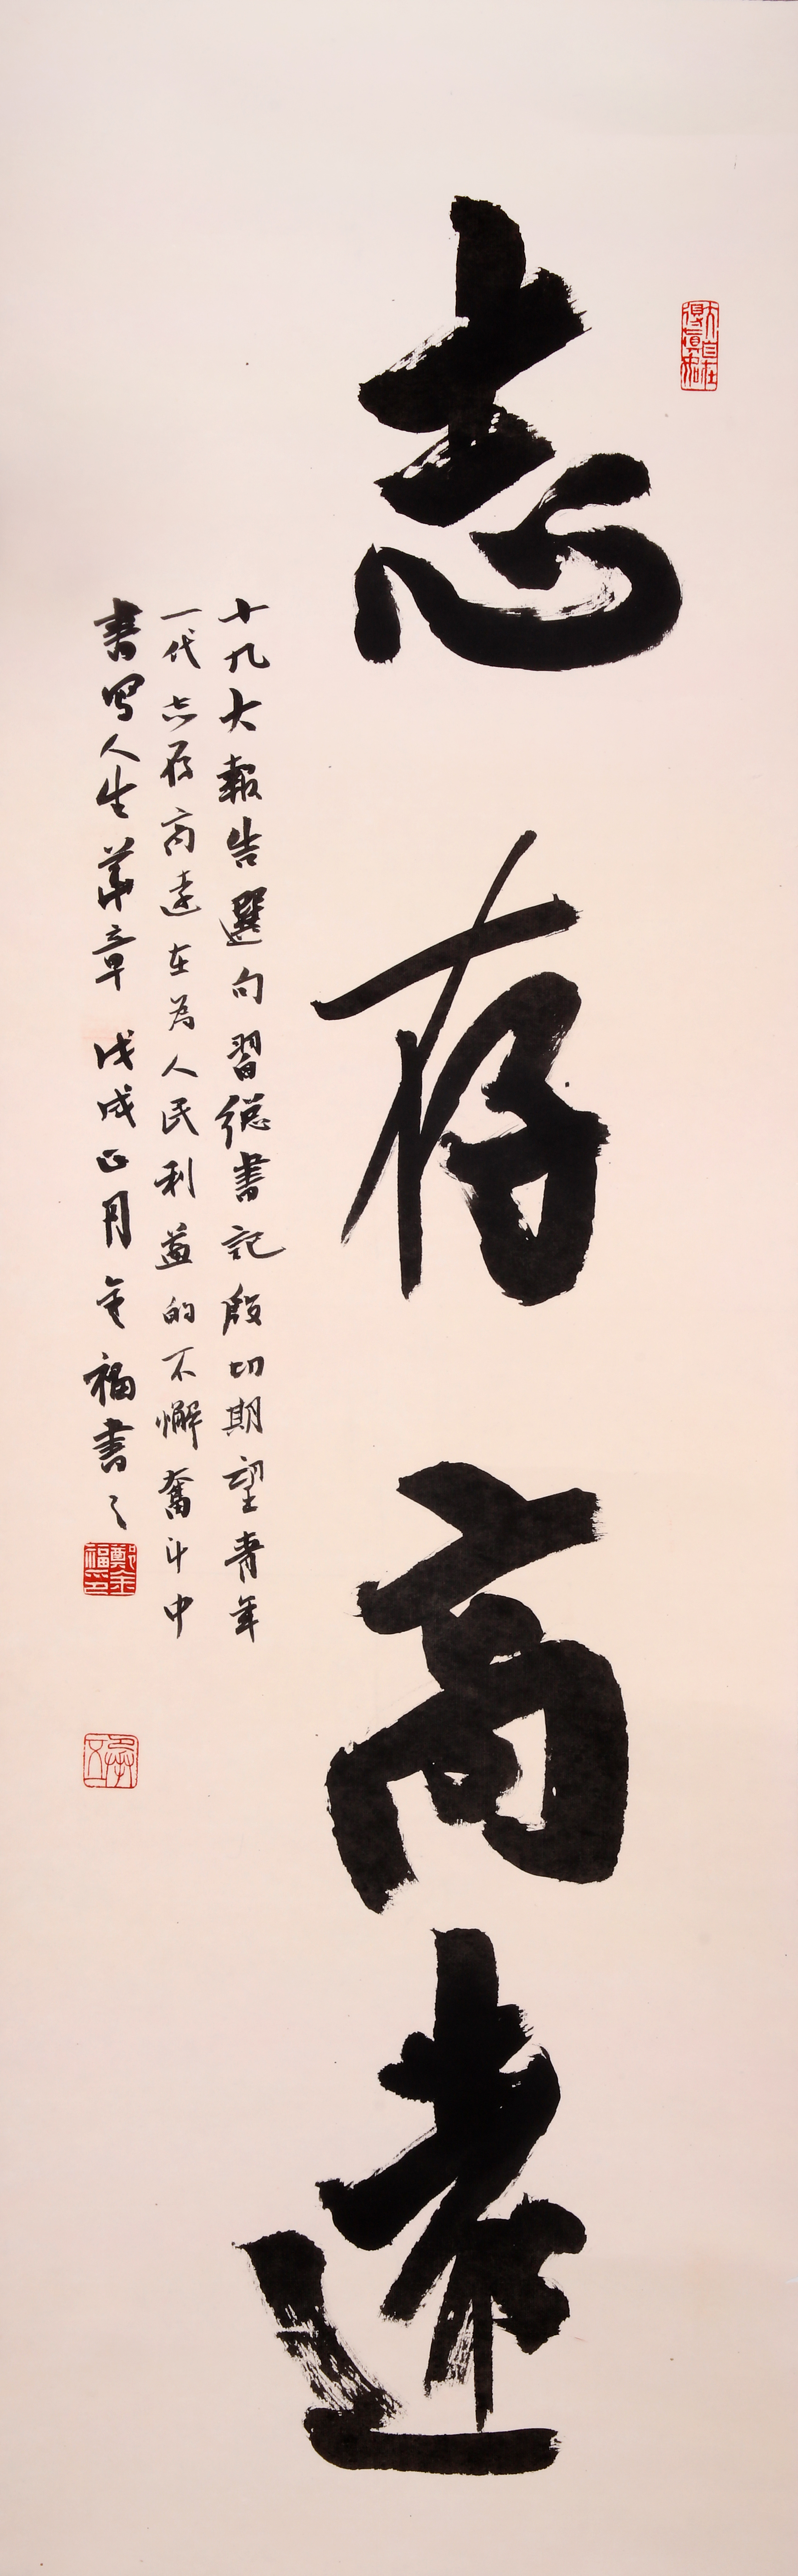 志存高遠
十九大報告選句習總書記殷切期望青年
一代志存高遠在為人民利益的不懈奮斗中
書寫人生華章 戊戌正月金福書之
大自在
鄭金福印